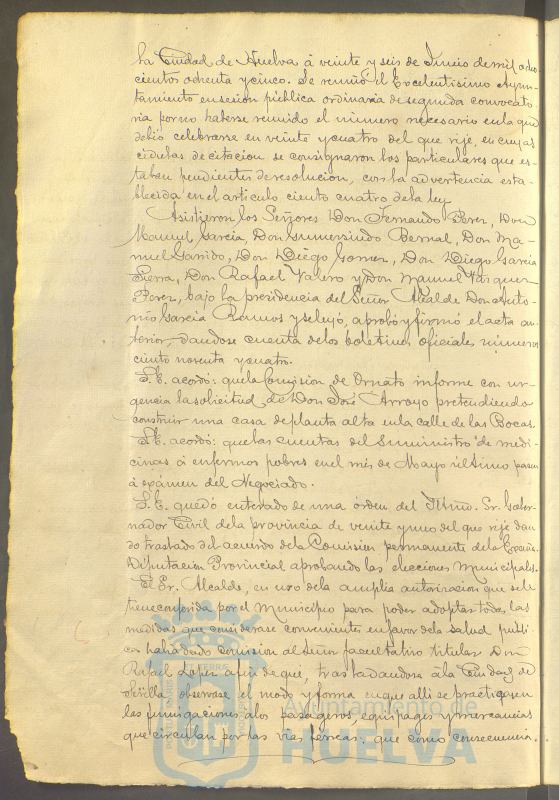 la Ciudad de Huelva á veinte y seis de Junio de mil ocho-
cientos ochenta y cinco. Se reunió el Excelentísimo Ayun-
tamiento en sesion pública ordinaria de segunda convocato-
ria por no haberse reunido el número necesario en la que
debió celebrarse en veinte y cuatro del que rije, en cuyas
cédulas de citacion se consignaron los particulares que es-
taban pendientes de resolucion, con la advertencia esta-
blecida en el artículo ciento cuatro de la ley.
Asistieron los Señores Don Fernando Perez, Don
Manuel Garcia, Don Gumersindo Bernal, Don Ma-
nuel Garrido, Don Diego Gomez, Don Diego Garcia
Sierra, Don Rafael Valero y Don Manuel Vazquez
Perez, bajo la presidencia del Señor Alcalde Don Anto-
nio Garcia Ramos y se leyó, aprobó y firmó el acta an-
terior, dandose cuenta de los boletines oficiales números
ciento noventa y cuatro.
S.E. acordó: que la Comision de Ornato informe con ur-
gencia la solicitud de Don José Arroyo pretendiendo
construir una casa de planta alta en la calle de las Bocas.
S.E. acordó: que las cuentas del Suministro de medi-
cinas á enfermos pobres en el mes de Mayo último pasen
á exámen del Negociado.
S.E. quedó enterado de una órden del Iltmo. Sr. Gober-
nador Civil de la provincia de veinte y uno del que rije dan-
do traslado del acuerdo de la Comision permanente de la Excma.
Diputacion Provincial aprobando las elecciones Municipales.
El Sr. Alcalde, en uso de la amplia autorizacion que se le
tiene conferida por el Municipio para poder adoptar todas las
medidas que considerase convenientes en favor de la salud públi-
ca habia dado comision al Señor facultativo titular Don
Rafael Lopez a fin de que, trasladandose á la Ciudad de
Sevilla observase el modo y forma en que alli se practiquen
las fumigaciones á los pasageros, equipages y mercancias
que circulan por las vias férreas; que como consecuencia
Ayuntamiento de
HUELVA